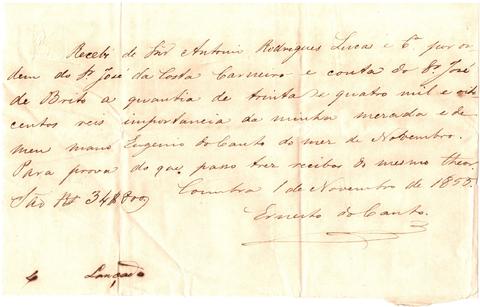 Recebi do Snr Antonio Rodrigues Lucas e Ca por or
dem do Sr José da Costa Carneiro e conta do Sr José
de Brito a quantia de trinta e quatro mil e oito
centos reis importancia da minha mezada e de
meu mano Eugenio do Canto do mez de Novembro.
Para prova do que passo trez recibos do mesmo theor.
São Rs 34$800
Coimbra 1 de Novembro de 1855.
Ernesto do Canto.
Lançado